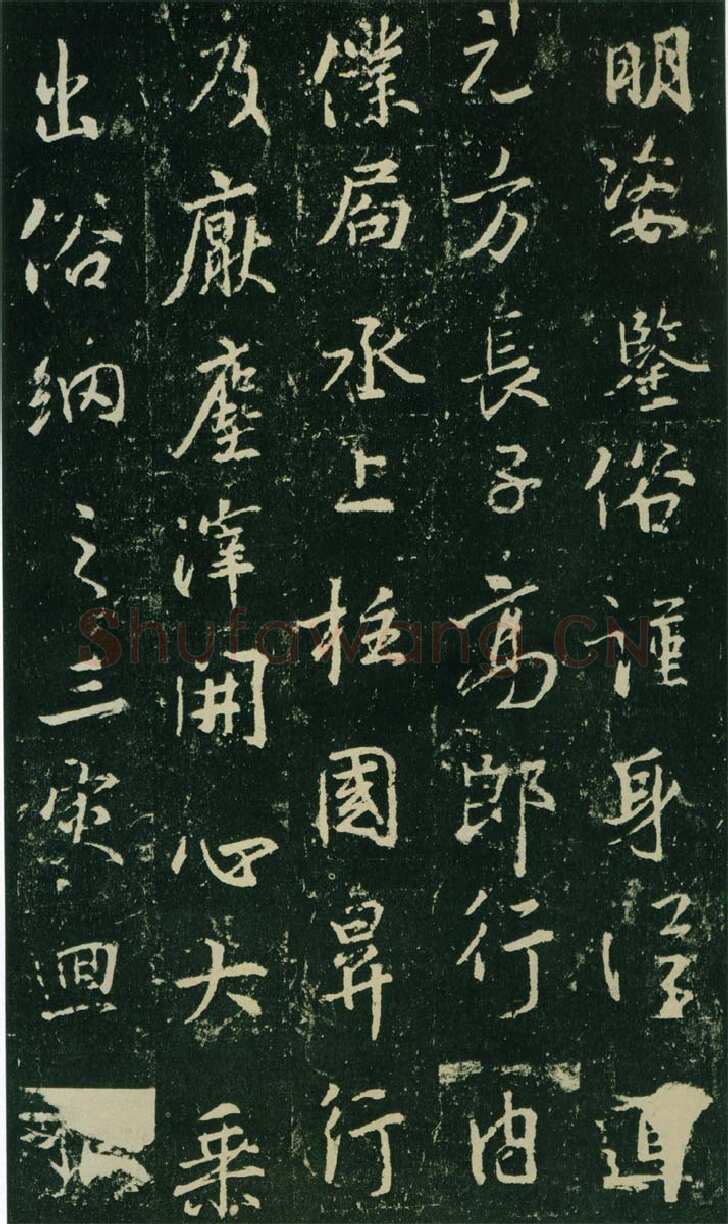 明姿鑒俗謹身
元方長子高郎行内
僕局丞上柱國昇行
及厭塵滓開心大乘
出俗網之三灾迴
Shufawang.CN